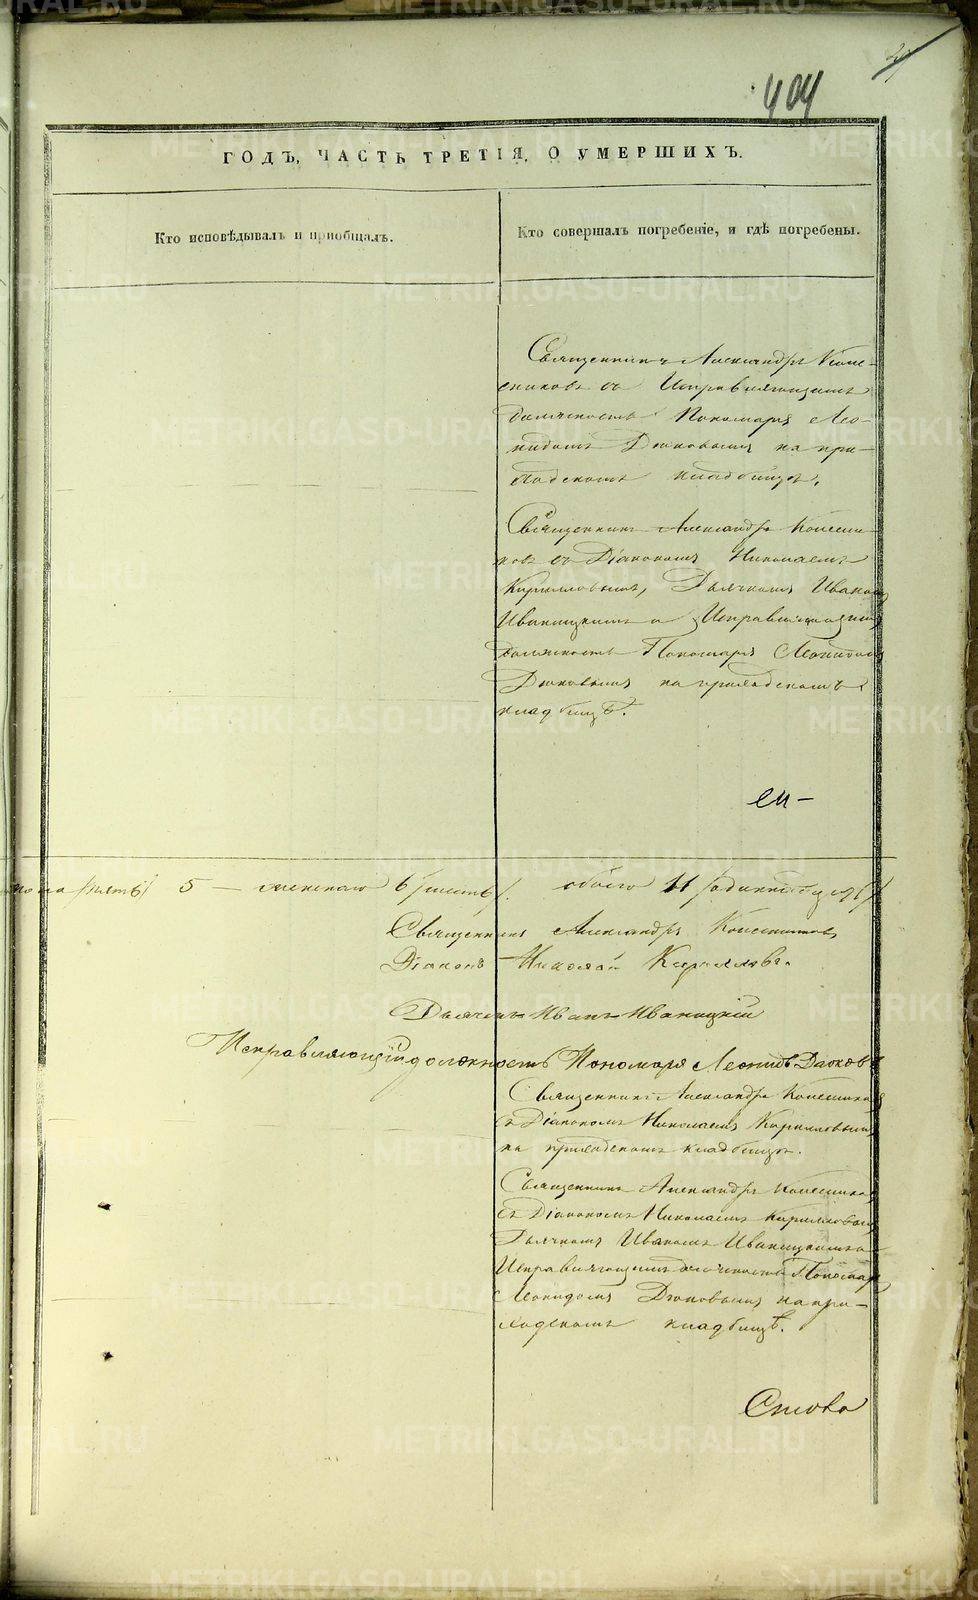 404
ГОДЪ, ЧАСТЬ ТРЕТІЯ, О УМЕРШИХЪ.
Кто исповѣдывалъ и пріобщалъ.
Кто совершалъ погребеніе, и гдѣ погребены.
Священникъ Александръ Колес-
никовъ съ Исправляющимъ
должность Пономаря Лео-
нидомъ Дюковымъ на при-
ходскомъ кладбищѣ.
Священникъ Александръ Колесни-
ковъ съ Діакономъ Николаемъ
Кирилловымъ, Дьячкомъ Иваномъ
Иваницкимъ и Исправляющимъ
должность Пономаря Леонидомъ
Дюковымъ на приходскомъ
кладбищѣ.
пола /пять/ 5 — женскаго 6 /шесть/. обоего 11 /одиннадцать/
Священникъ Александръ Колесниковъ
Діаконъ Николай Кирилловъ
Дьячекъ Иванъ Иваницкій
Исправляющій должность Пономаря Леонидъ Дюковъ
Священникъ Александръ Колесниковъ
съ Діакономъ Николаемъ Кирилловымъ
на приходскомъ кладбищѣ.
Священникъ Александръ Колесниковъ
съ Діакономъ Николаемъ Кирилловымъ
Дьячкомъ Иваномъ Иваницкимъ и
Исправляющимъ должность Пономаря
Леонидомъ Дюковымъ на при-
ходскомъ кладбищѣ.
METRIKI.GASO-URAL.RU